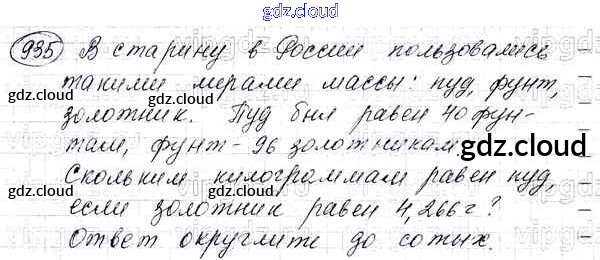 gdz.cloud
935 В старину в России пользовались
такими мерами массы: пуд, фунт,
gdz.cloud gdz.cloud
золотник. Пуд был равен 40 фун-
там, фунт - 96 золотникам.
gdz.cloud
Скольким килограммам равен пуд,
gdz.cloud gdz.cloud
если золотник равен 4,266 г?
Ответ округлите до сотых.
gdz.cloud